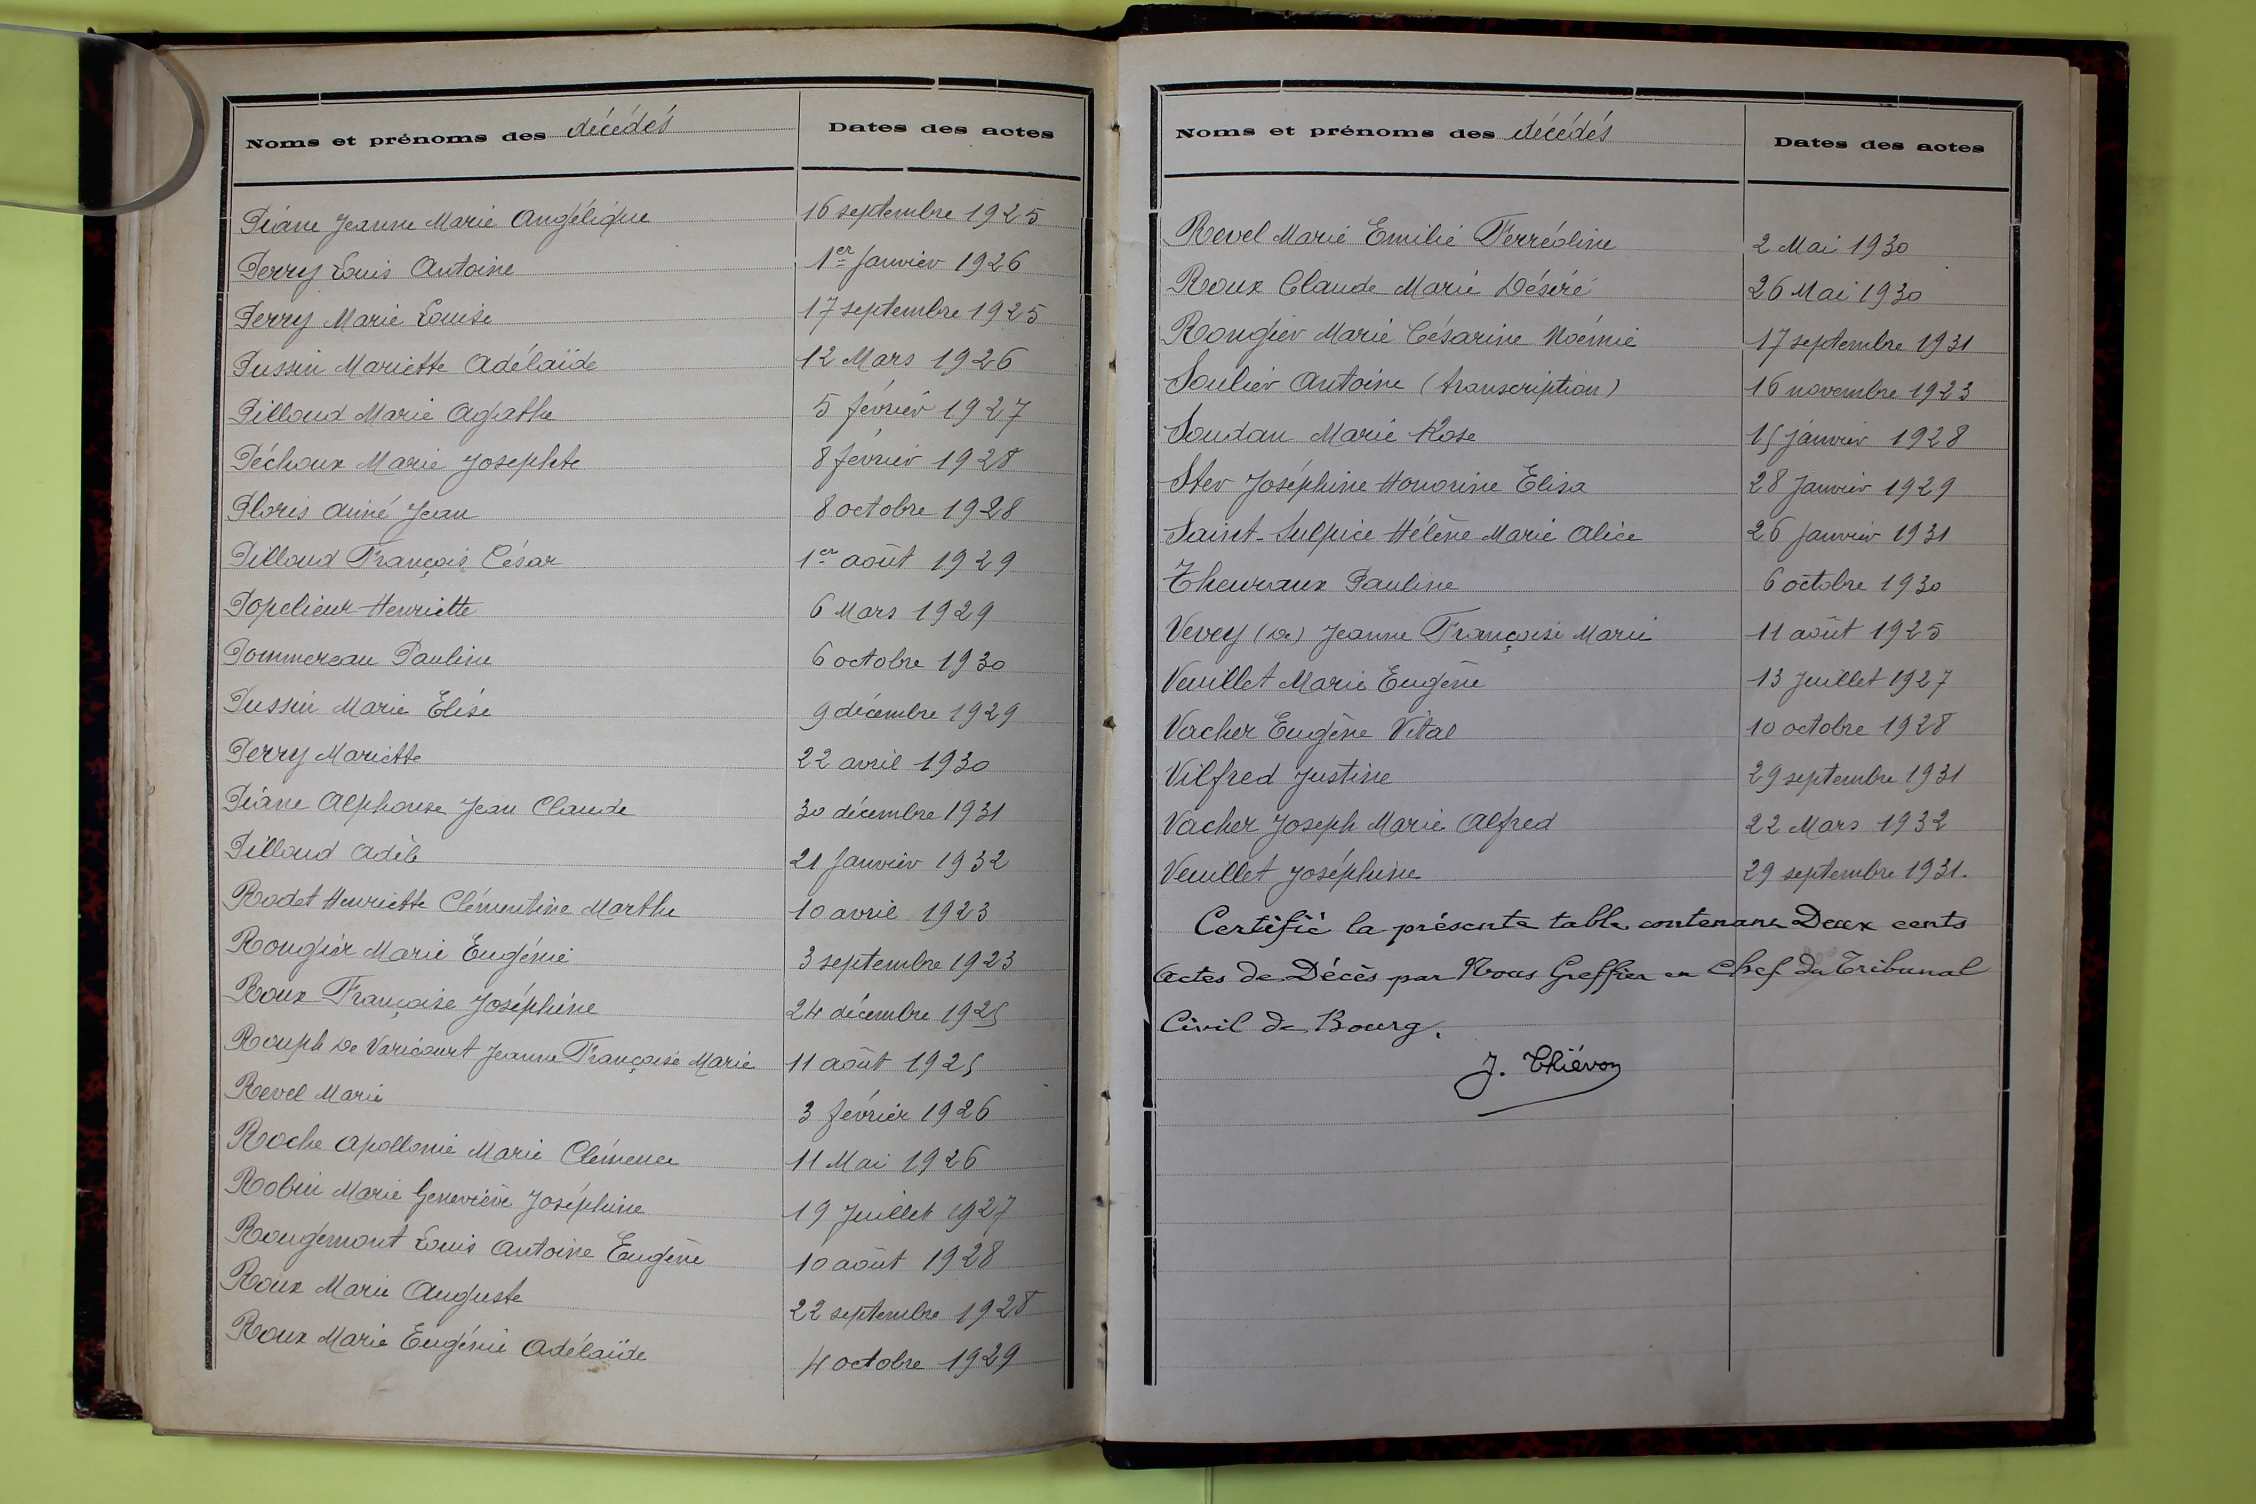 Noms et prénoms des décédés Dates des actes
Piane Jeanne Marie Angélique 16 septembre 1925
Perry Louis Antoine 1er Janvier 1926
Perry Marie Louise 17 septembre 1925
Pussin Mariette Adélaïde 12 Mars 1926
Pilloud Marie Agathe 5 février 1927
Péchoux Marie Josephte 8 février 1928
Floris Aimé Jean 8 octobre 1928
Pilloud François César 1er août 1929
Popelieur Henriette 6 Mars 1929
Pommereau Pauline 6 octobre 1930
Pussin Marie Elise 9 décembre 1929
Perry Mariette 22 avril 1930
Piane Alphonse Jean Claude 30 décembre 1931
Pilloud Adèle 21 Janvier 1932
Rodet Henriette Clémentine Marthe 10 avril 1923
Rougier Marie Eugénie 3 septembre 1923
Roux Françoise Joséphine 24 décembre 1925
Rouph de Varicourt Jeanne Françoise Marie 11 août 1925
Revel Marie 3 février 1926
Roche Apollonie Marie Clémence 11 Mai 1926
Robin Marie Geneviève Joséphine 19 Juillet 1927
Rougemont Louis Antoine Eugène 10 août 1928
Roux Marie Auguste 22 septembre 1928
Roux Marie Eugénie Adélaïde 4 octobre 1929
Noms et prénoms des décédés Dates des actes
Revel Marie Emilie Ferréoline 2 Mai 1930
Roux Claude Marie Désiré 26 Mai 1930
Rougier Marie Césarine Noémie 17 septembre 1931
Soulier Antoine (transcription) 16 novembre 1923
Soudan Marie Rose 15 janvier 1928
Ster Joséphine Honorine Elisa 28 Janvier 1929
Saint-Sulpice Hélène Marie Alice 26 Janvier 1931
Thevenaux Pauline 6 octobre 1930
Vevey (de) Jeanne Françoise Marie 11 août 1925
Veuillet Marie Eugène 13 Juillet 1927
Vacher Eugène Vital 10 octobre 1928
Vilfred Justine 29 septembre 1931
Vacher Joseph Marie Alfred 22 Mars 1932
Veuillet Joséphine 29 septembre 1931.
Certifié la présente table contenant Deux cents
Actes de Décès par Nous Greffier en Chef du Tribunal
Civil de Bourg.
J. Thiévon